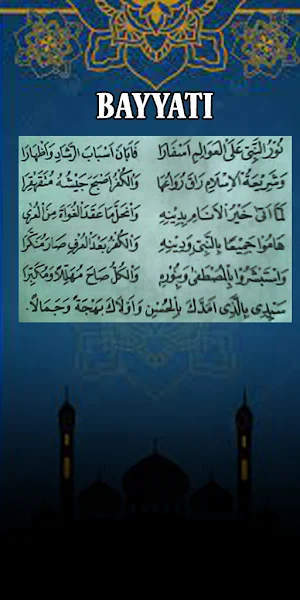 BAYYATI
نُوْرُ النَّبِيْ عَلَى الْعَوَالِمِ اَسْفَارَا فَاَبَانَ اَسْبَابَ الرَّشَادِ وَاَظْهَارَا
وَشَرِيْعَةُ الْاِسْلَامِ رَاقَ زُلَالُهَا وَالْكُفْرُ اَصْبَحَ جَيْشُهُ مُتَقَهْقِرَا
لَمَّا اَتَى خَيْرُ الْاَنَامِ بِدِيْنِهِ وَانْحَلَّ مَا عَقَدَ الْغُوَاةُ مِنَ الْعُرَى
هَامُوْا جَمِيْعًا بِالنَّبِيْ وَدِيْنِهِ وَالْكُفْرُ بَعْدَ الْعُرْفِ صَارَ مُنَكَّرَا
وَاسْتَبْشَرُوْا بِالْمُصْطَفَى وَبِنُوْرِهِ وَالْكُلُّ صَاحَ مُهَلِّلًا وَمُكَبِّرَا
سَيِّدِيْ بِالَّذِيْ اَمَدَّكَ بِالْحُسْنِ وَاَوْلَاكَ بَهْجَةً وَجَمَالًا